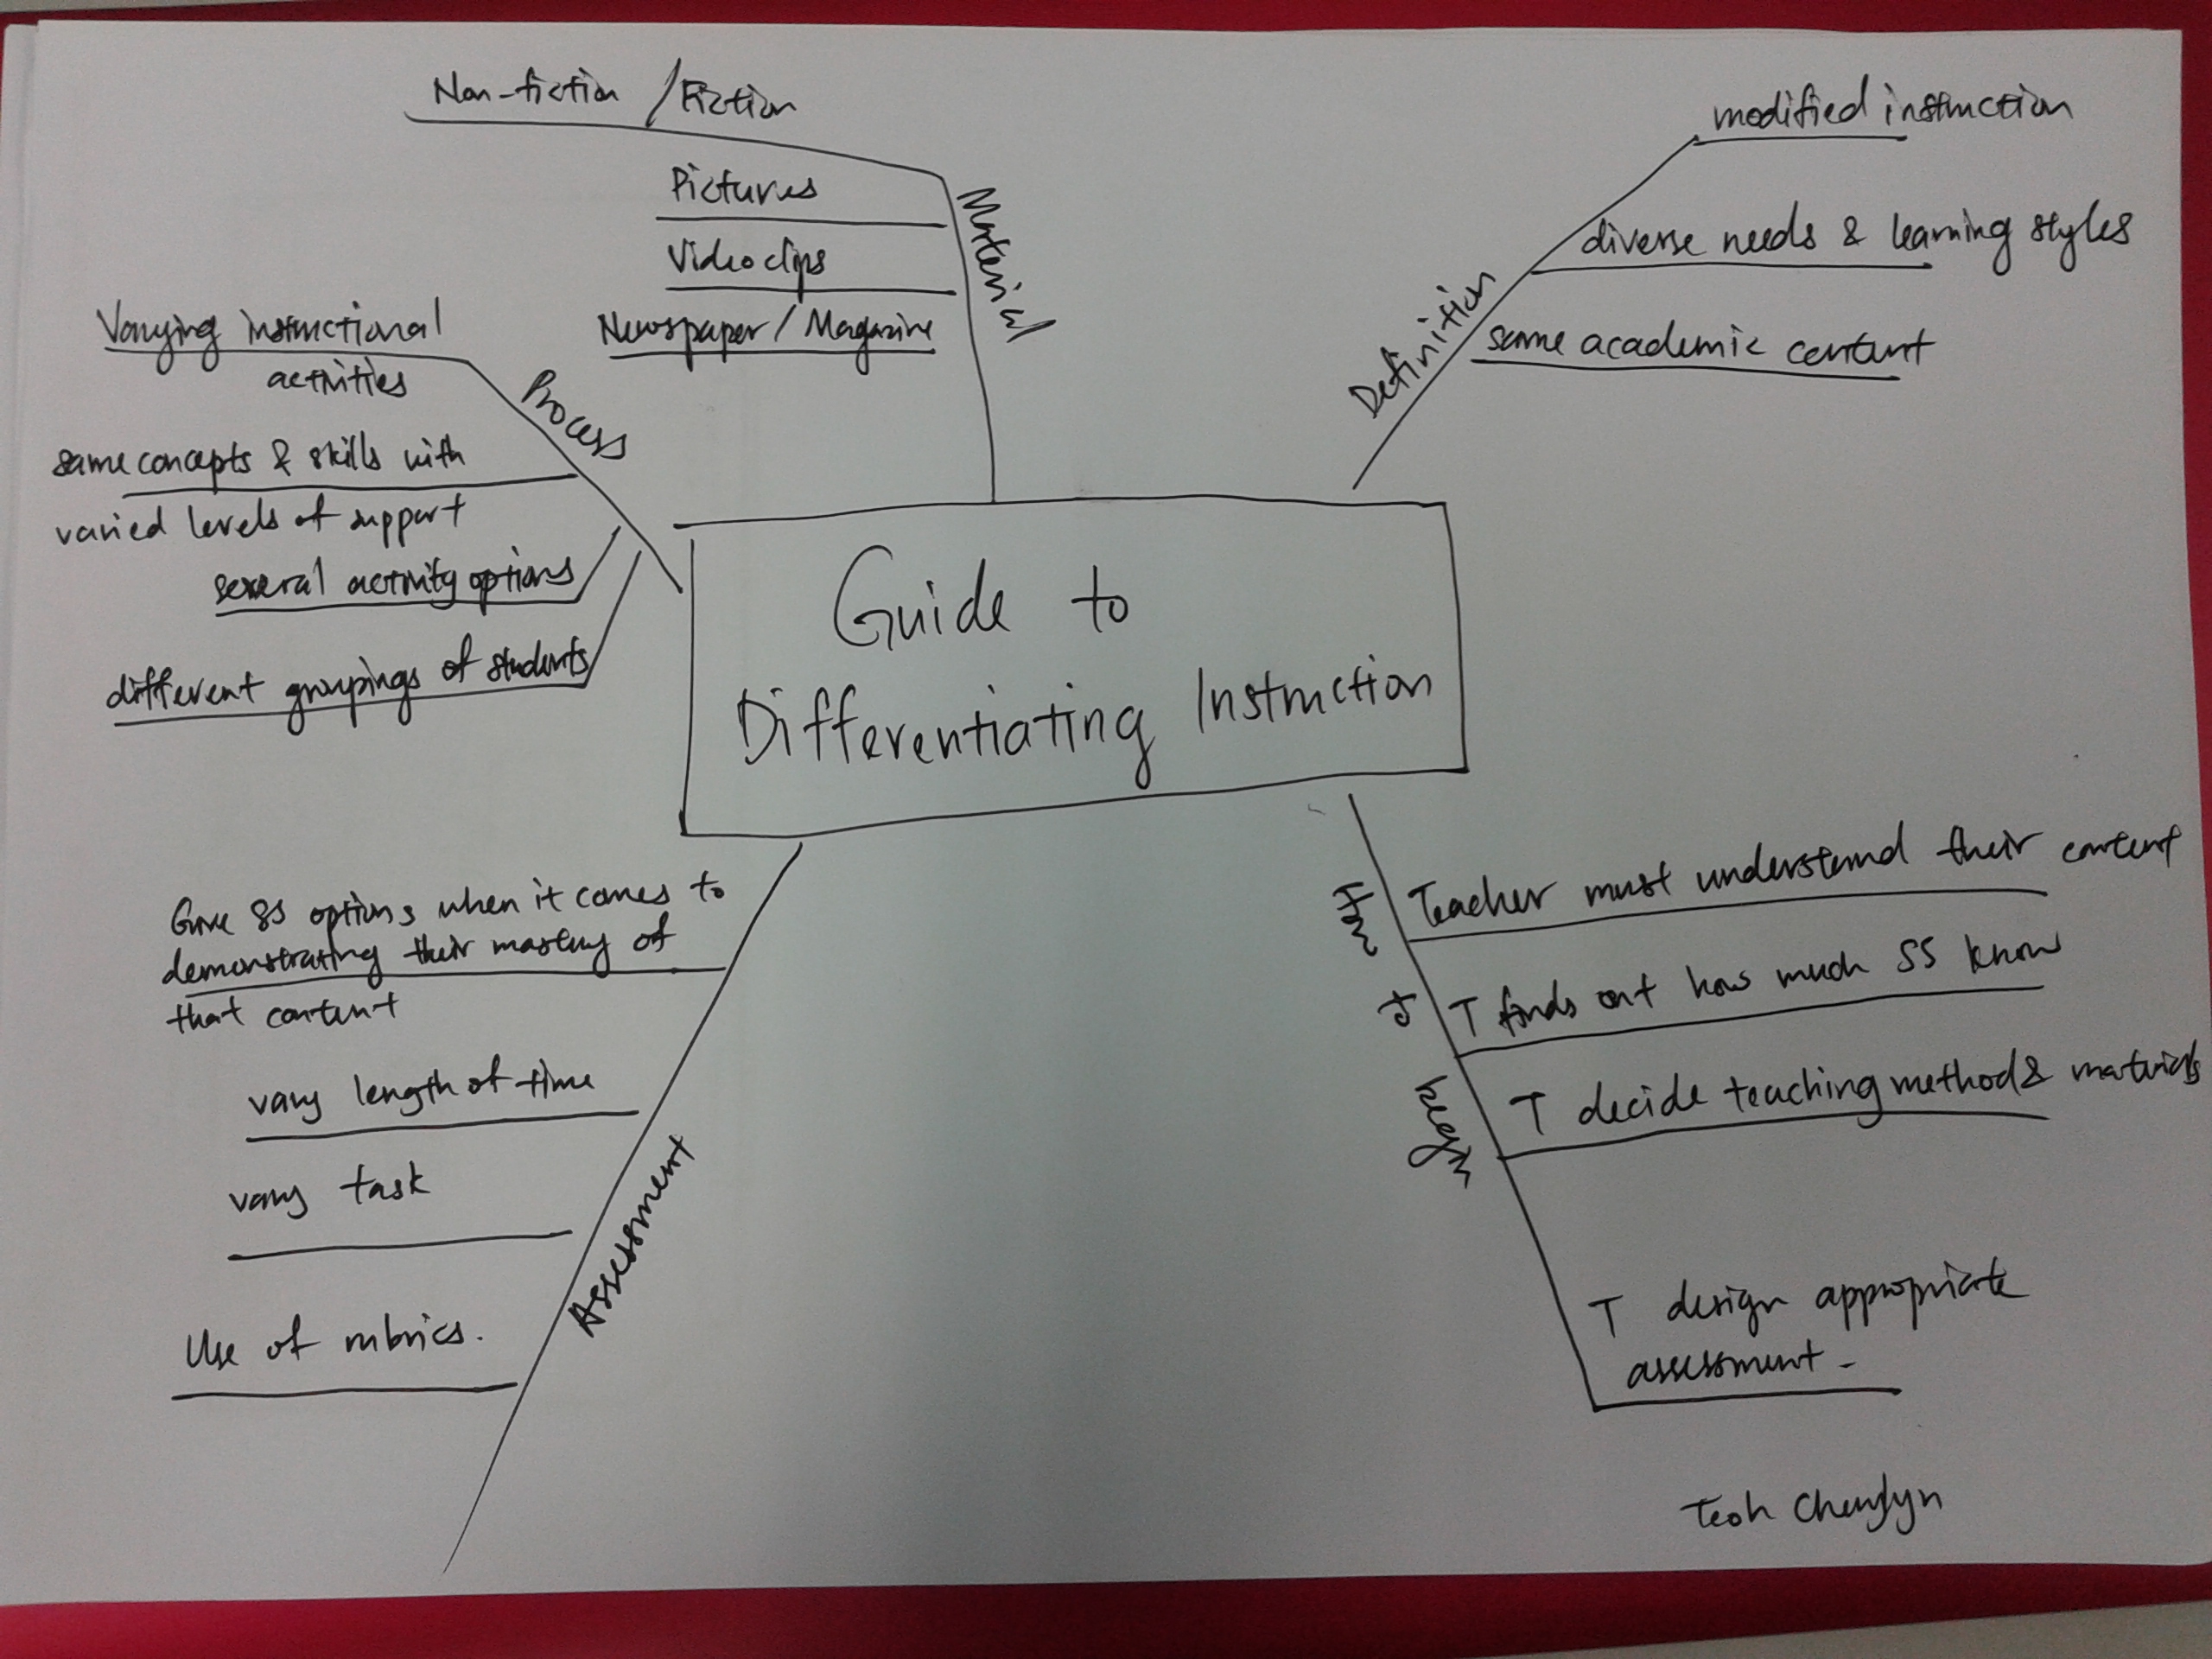 Non-fiction / Fiction
Pictures
Video clips
Newspaper / Magazine
Material
modified instruction
diverse needs & learning styles
same academic content
Definition
Varying instructional
activities
same concepts & skills with
varied levels of support
several activity options
different groupings of students
Process
Guide to
Differentiating Instruction
Give SS options when it comes to
demonstrating their mastery of
that content
vary length of time
vary task
Use of rubrics.
Assessment
How
to
begin
Teacher must understand their content
T finds out how much SS know
T decide teaching method & materials
T design appropriate
assessment -
Teoh